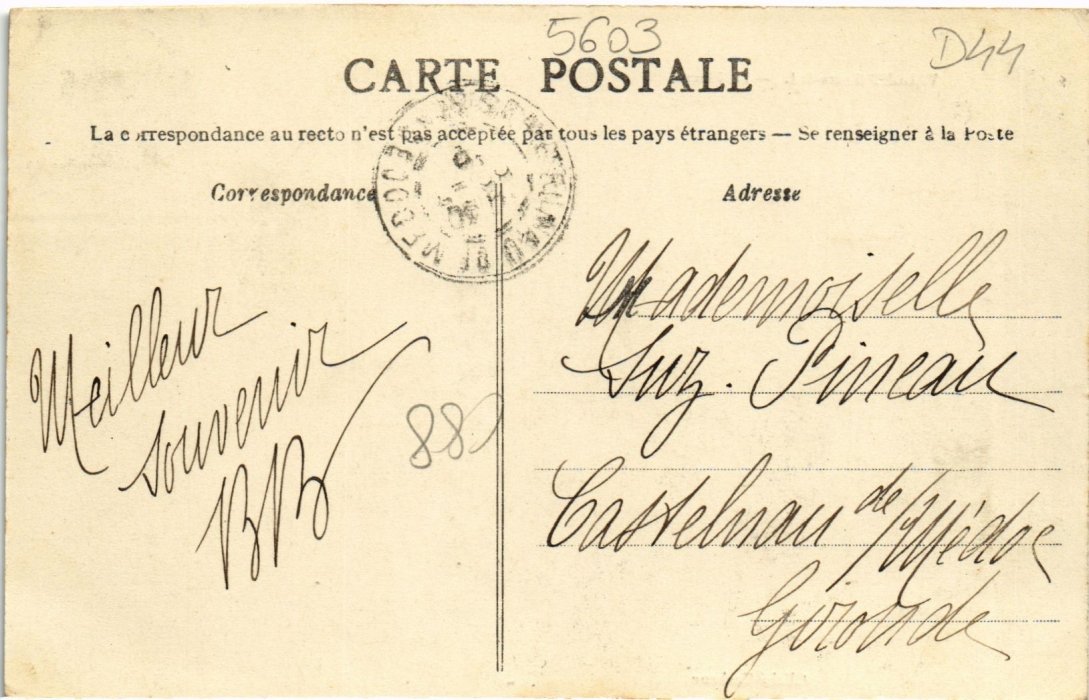 5603
D44
CARTE POSTALE
La correspondance au recto n'est pas acceptée par tous les pays étrangers — Se renseigner à la Poste
Correspondance
Adresse
CASTELNAU DE MEDOC
Meilleur
souvenir
BB
88
Mademoiselle
Suz. Pineau
Castelnau de/Médoc
Gironde